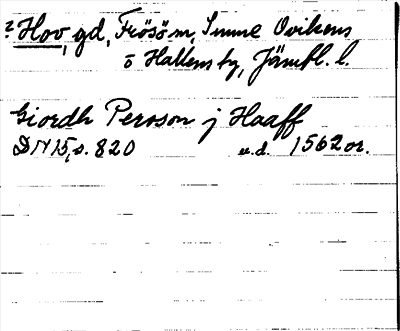 ? Hov, gd, Frösö m, Sunne Ovikens
o Hallens ty, Jämtl. l.
Giordh Persson j Haaff
DN 15, s. 820 u.d. 1562 or.